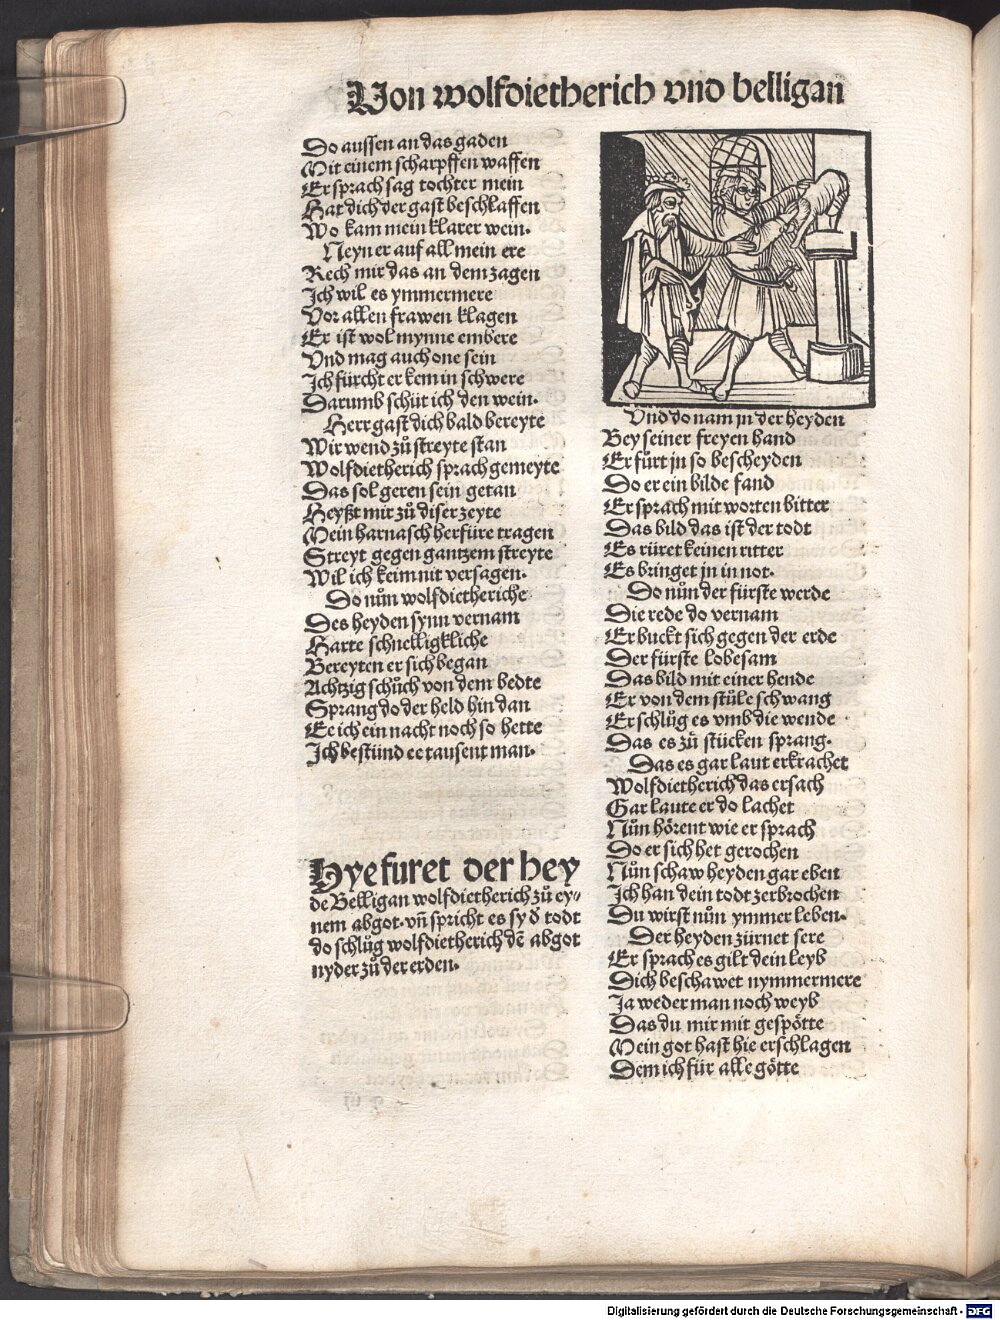 Von wolfdietherich vnd belligan
Do aussen an das gaden
Mit einem scharpffen waffen
Er sprach sag tochter mein
Hat dich der gast beschlaffen
Wo kam mein klarer wein.
Neyn er auf all mein ere
Rech mir das an dem zagen
Ich wil es ymmermere
Vor allen frawen klagen
Er ist wol mynne embere
Vnd mag auch one sein
Ich fürcht er kem in schwere
Darumb schüt ich den wein.
Herr gast dich bald bereyte
Wir wend zů streyte stan
Wolfdietherich sprach gemeyte
Das sol geren sein getan
Heyßt mir zů diser zeyte
Mein harnasch herfüre tragen
Streyt gegen gantzem streyte
Wil ich keim nit versagen.
Do nůn wolfdietheriche
Des heyden synn vernam
Harte schnelligkliche
Bereyten er sich began
Achtzig schůch von dem bedte
Sprang do der held hin dan
Ee ich ein nacht noch so hette
Ich bestünd ee tausent man.
Hye furet der hey
de Belligan wolfdietherich zů ey⸗
nem abgot. vñ spricht es sy d̄ todt
do schlůg wolfdietherich dē abgot
nyder zů der erden.
Vnd do nam jn der heyden
Bey seiner freyen hand
Er fürt jn so bescheyden
Do er ein bilde fand
Er sprach mit worten bitter
Das bild das ist der todt
Es rüret keinen ritter
Es bringet jn in not.
Do nůn der fürste werde
Die rede do vernam
Er buckt sich gegen der erde
Der fürste lobesam
Das bild mit einer hende
Er von dem stůle schwang
Er schlůg es vmb die wende
Das es zů stücken sprang.
Das es gar laut erkrachet
Wolfdietherich das ersach
Gar laute er do lachet
Nůn hörent wie er sprach
Do er sich het gerochen
Nůn schaw heyden gar eben
Ich han dein todt zerbrochen
Du wirst nům ymmer leben.
Der heyden zürnet sere
Er sprach es gilt dein leyb
Dich beschawet nymmermere
Ja weder man noch weyb
Das du mir mit gespötte
Mein got hast hie erschlagen
Dem ich für alle götte
Digitalisierung gefördert durch die Deutsche Forschungsgemeinschaft - DFG